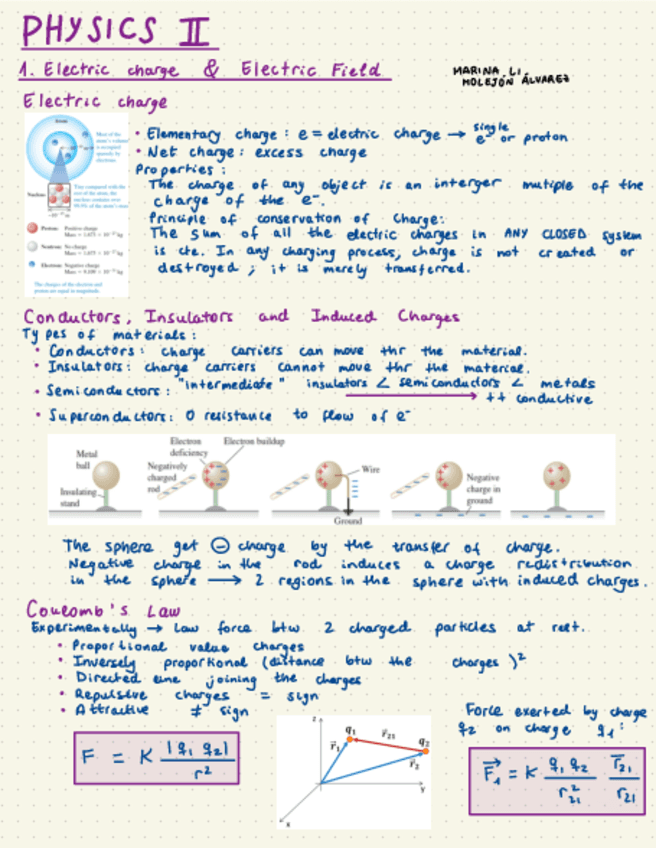 PHYSICS II
1. Electric charge & Electric Field
MARINA LI
MOLEJÓN ÁLVAREZ
Electric charge
Atom
Most of the
atom's volume
is occupied
sparsely by
electrons.
Tiny compared with the
rest of the atom, the
nucleus contains over
99.9% of the atom's mass.
Nucleus
Proton: Positive charge
Mass = 1.673 × 10⁻²⁷ kg
Neutron: No charge
Mass = 1.675 × 10⁻²⁷ kg
Electron: Negative charge
Mass = 9.109 × 10⁻³¹ kg
The charges of the electron and
proton are equal in magnitude.
• Elementary charge : e = electric charge → single e⁻ or proton
• Net charge : excess charge
Properties :
The charge of any object is an interger mutiple of the
charge of the e⁻.
Principle of conservation of Charge:
The sum of all the electric charges in ANY CLOSED system
is cte. In any charging process, charge is not created or
destroyed ; it is merely transferred.
Conductors, Insulators and Induced Charges
Types of materials :
• Conductors : charge carriers can move thr the material.
• Insulators : charge carriers cannot move thr the material.
• Semiconductors : "intermediate" insulators < semiconductors < metals
→ ++ conductive
• Superconductors: 0 resistance to flow of e⁻
Metal
ball
Insulating
stand
Electron
deficiency
Electron buildup
Negatively
charged
rod
Wire
Ground
Negative
charge in
ground
The sphere get ⊖ charge by the transfer of charge.
Negative charge in the rod induces a charge redistribution
in the sphere → 2 regions in the sphere with induced charges.
Coulomb's Law
Experimentally → Law force btw 2 charged particles at rest.
• Proportional value charges
• Inversely proportional (distance btw the charges)²
• Directed line joining the charges
• Repulsive charges = sign
• Attractive ≠ sign
F = K |q₁ q₂| / r²
z
q₁
r⃗₂₁
q₂
r⃗₁
r⃗₂
y
x
Force exerted by charge
q₂ on charge q₁ :
F⃗₁ = K q₁ q₂ / r²₂₁ r̄₂₁ / r₂₁